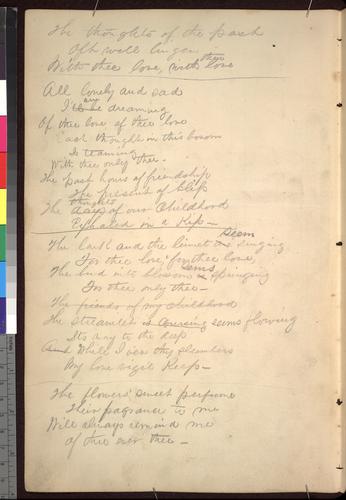 The thoughts of the past
Oft will linger
With thee love, with thee love
All lonely and sad
I'll be dreaming
Of thee love of thee love
Each thought in this bosom
Is teaming
With thee only thee.
The past hours of friendship
The present of bliss
The thoughts days of our childhood
Expiated in a Kiss—
The lark and the linnet are seem singing
For thee love, for thee love
The bud into blossom is seems springing
For thee only thee—
The friends of my childhood
The streamlet is coursing seems flowing
Its way to the deep
And While I o'er thy slumbers
My love vigil Keep—
The flowers' sweet perfume
Their fragrance to me
Will always remind me
of thee ever thee—